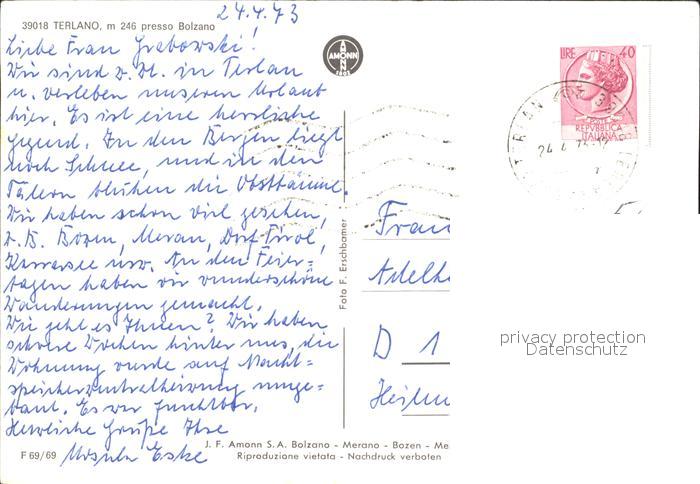 39018 TERLANO, m 246 presso Bolzano
24.4.73
Liebe Frau Grabowski!
Wir sind z. Zt. in Terlan
u. verleben unseren Urlaub
hier. Es ist eine herrliche
Gegend. In den Bergen liegt
noch Schnee, und in den
Tälern blühen die Obstbäume.
Wir haben schon viel gesehen,
z.B. Bozen, Meran, Dorf Tirol,
Karrasee usw. An den Feier=
tagen haben wir wunderschöne
Wanderungen gemacht.
Wie geht es Ihnen? Wir haben
schwere Wochen hinter uns, die
Wohnung wurde auf Nacht=
speicherzentralheizung umge=
baut. Es war furchtbar.
Herzliche Grüße Ihre
Ursula Eske
F 69/69
AMONN
1802
LIRE 40
POSTE
REPVBBLICA
ITALIANA
TERLAN
24.4.73
Foto F. Erschbamer
Frau
Adelh
D 1
Heilm
privacy protection
Datenschutz
J. F. Amonn S.A. Bolzano - Merano - Bozen - Me
Riproduzione vietata - Nachdruck verboten